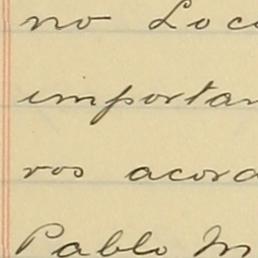 no Loc
importan
ros acord
Pablo M